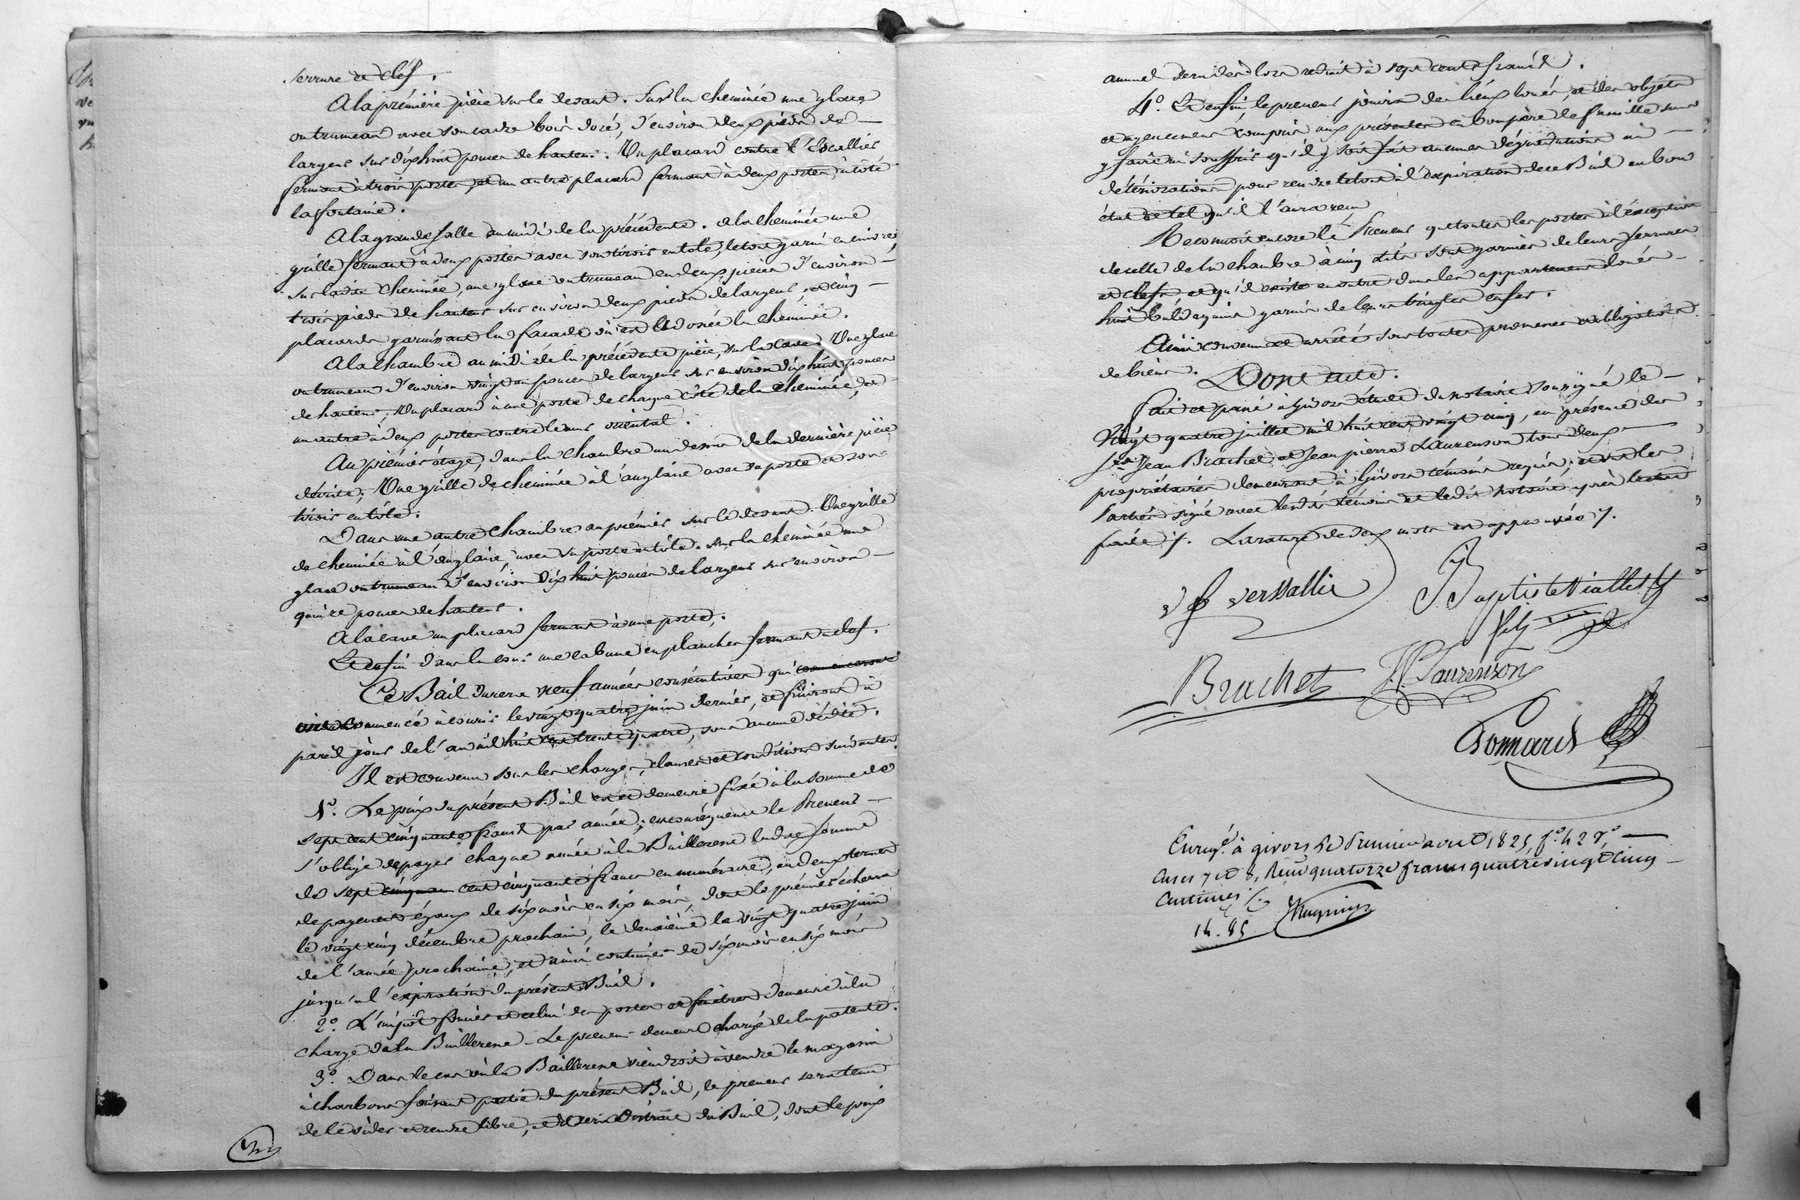 serrure et clef.
A la première pièce sur le devant. Sur la cheminée une glace
ou trumeau avec son cadre bois doré, d'environ deux pieds de
largeur sur dix huit pouces de hauteur. Un placard contre l'Escallier
fermant à trois portes, et un autre placard fermant à deux portes à côté
la fontaine.
A la grande salle au midi de la précédente. a la cheminée une
grille fermant à deux portes avec son tiroir en tole, le tout garni en cuivre,
sur la dite cheminée, une glace ou trumeau en deux pièces d'environ
trois pieds de hauteur sur environ deux pieds de largeur, et cinq
placards garnissant la façade où est adossée la cheminée.
A la chambre au midi de la précédente pièce, sur le Une glace
ou trumeau d'environ vingt un pouces de largeur sur environ dix huit pouces
de hauteur, un placard à une porte de chaque côté de la cheminée, et
un autre à deux portes contre le mur oriental.
Au premier étage, dans la chambre au dessus de la dernière pièce
décrite, Une grille de cheminée à l'anglaise avec sa porte et son
tiroir en tôle.
Dans une autre chambre au premier sur le devant. Une grille
de cheminée à l'anglaise avec sa porte en tôle. Sur la cheminée une
glace ou trumeau d'environ dix huit pouces de largeur sur environ
quinze pouces de hauteur.
A la cave un placard fermant à une porte.
Et enfin dans la cour une cabane en planches fermant à clef.
Ce Bail durera neuf années consécutives qui commenceront
commencé à courir le vingt quatre juin dernier, et finiront à
pareil jour de l'an mil huit cent trente quatre, sans aucune dédite.
Il est convenu sous les charges, clauses et conditions suivantes.
1º. Le prix du présent Bail est et demeure fixé à la somme de
sept cent cinquante francs par année; en conséquence le Preneur
s'oblige de payer chaque année à la Bailleresse ladite somme
de sept cent cinquante francs en numéraire, en deux termes
de payement égaux de six mois en six mois, dont le premier écherra
le vingt cinq décembre prochain, le deuxième le vingt quatre juin
de l'année prochaine, et ainsi continuer de six mois en six mois
jusqu'à l'expiration du présent Bail.
2º. L'impôt foncier et celui des portes et fenêtres demeure à la
charge de la Bailleresse. Le preneur demeure chargé de la patente.
3º. Dans le cas où la Bailleresse viendroit à vendre le magasin
à charbons faisant partie du présent Bail, le preneur sera tenu
de le vider et rendre libre, et il sera distrait du Bail, dont le prix
annuel sera dès lors réduit à sept cents francs.
4º. Et enfin le preneur jouira des lieux loués, et des objets
et agencements compris aux présentes en bon père de famille sans
y faire ni souffrir qu'il y soit fait aucunes dégradations ni
détériorations pour rendre le tout à l'expiration de ce Bail en bon
état et tel qu'il l'aura reçu
Reconnoit encore le Preneur que toutes les portes à l'éxception
de celle de la chambre à cinq lits sont garnies de leurs serrures
et clefs et qu'il existe en outre dans les appartements loués
huit garnis de leurs tringles en fer.
Ainsi convenu et arrêté sous toutes promesses et obligations
de biens. Dont acte.
Fait et passé à Givors étude du notaire soussigné le
Vingt quatre juillet mil huit cent vingt cinq, en présence des
srs. Jean Brachet et Jean pierre Laurenson tous deux
propriétaires demeurant à Givors témoins requis; et ont les
Parties signé avec lesdits témoins et ledit notaire après lecture
faite /. La rature de deux mots est approuvée /.
vf versallie
J. Baptiste Viallet
fils
Brachet J. P. Laurenson
Bonnard
Enregé. à givors le 1825, fº. 42 vº.
cases 7 et 8, Reçu quatorze francs quatre vingt cinq
centimes
14. 85